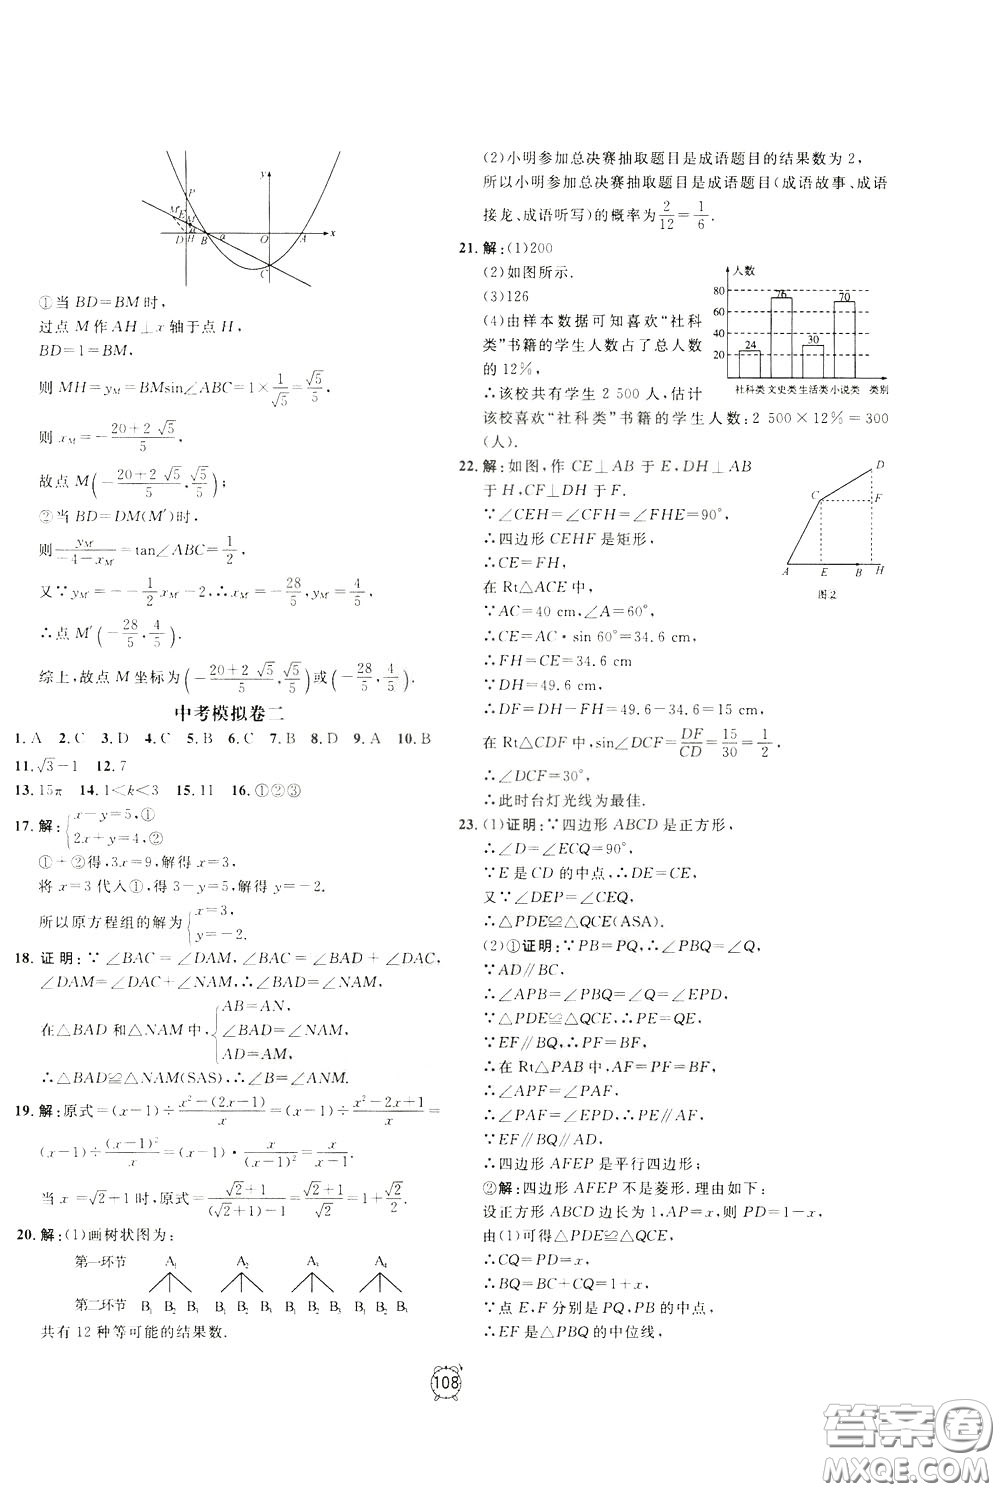 y
P
M'
E
M
D
H
B
a
O
A
x
C
①当 BD=BM 时,
过点 M 作 AH⊥x 轴于点 H,
BD=1=BM,
则 MH=y_M=BMsin∠ABC=1×1/√5=√5/5,
则 x_M=-(20+2√5)/5,
故点 M(-(20+2√5)/5, √5/5);
②当 BD=DM(M')时,
则 y_M'/(-4-x_M')=tan∠ABC=1/2,
又∵y_M'=-1/2x_M'-2,∴x_M'=-28/5,y_M'=4/5,
∴点 M'(-28/5, 4/5).
综上,故点 M 坐标为(-(20+2√5)/5, √5/5)或(-28/5, 4/5).
中考模拟卷二
1. A 2. C 3. D 4. C 5. B 6. C 7. B 8. D 9. A 10. B
11. √3-1 12. 7
13. 15π 14. 1<k<3 15. 11 16. ①②③
17. 解:{x-y=5,①
2x+y=4,②
①+②得,3x=9,解得 x=3,
将 x=3 代入①,得 3-y=5,解得 y=-2.
所以原方程组的解为{x=3,
y=-2.
18. 证明:∵∠BAC=∠DAM,∠BAC=∠BAD+∠DAC,
∠DAM=∠DAC+∠NAM,∴∠BAD=∠NAM,
在△BAD 和△NAM 中,{AB=AN,
∠BAD=∠NAM,
AD=AM,
∴△BAD≌△NAM(SAS),∴∠B=∠ANM.
19. 解:原式=(x-1)÷(x²-(2x-1))/x=(x-1)÷(x²-2x+1)/x=
(x-1)÷(x-1)²/x=(x-1)·x/(x-1)²=x/(x-1).
当 x=√2+1 时,原式=(√2+1)/((√2+1)-1)=(√2+1)/√2=1+√2/2.
20. 解:(1)画树状图为:
第一环节 A₁ A₂ A₃ A₄
第二环节 B₁ B₂ B₃ B₁ B₂ B₃ B₁ B₂ B₃ B₁ B₂ B₃
共有 12 种等可能的结果数.
(2)小明参加总决赛抽取题目是成语题目的结果数为 2,
所以小明参加总决赛抽取题目是成语题目(成语故事、成语
接龙、成语听写)的概率为2/12=1/6.
21. 解:(1)200
(2)如图所示.
(3)126
(4)由样本数据可知喜欢“社科
类”书籍的学生人数占了总人数
的 12%,
∴该校共有学生 2 500 人,估计
该校喜欢“社科类”书籍的学生人数:2 500×12%=300
(人).
人数
80
60
40
20
24
76
30
70
社科类 文史类 生活类 小说类 类别
22. 解:如图,作 CE⊥AB 于 E,DH⊥AB
于 H,CF⊥DH 于 F.
∵∠CEH=∠CFH=∠FHE=90°,
∴四边形 CEHF 是矩形,
∴CE=FH,
在 Rt△ACE 中,
∵AC=40 cm,∠A=60°,
∴CE=AC·sin 60°=34.6 cm,
∴FH=CE=34.6 cm
∵DH=49.6 cm,
∴DF=DH-FH=49.6-34.6=15 cm,
在 Rt△CDF 中,sin∠DCF=DF/CD=15/30=1/2,
∴∠DCF=30°,
∴此时台灯光线为最佳.
D
C
F
A
E
B
H
图2
23. (1)证明:∵四边形 ABCD 是正方形,
∴∠D=∠ECQ=90°,
∵E 是 CD 的中点,∴DE=CE,
又∵∠DEP=∠CEQ,
∴△PDE≌△QCE(ASA).
(2)①证明:∵PB=PQ,∴∠PBQ=∠Q,
∵AD∥BC,
∴∠APB=∠PBQ=∠Q=∠EPD,
∵△PDE≌△QCE,∴PE=QE,
∵EF∥BQ,∴PF=BF,
∴在 Rt△PAB 中,AF=PF=BF,
∴∠APF=∠PAF,
∴∠PAF=∠EPD,∴PE∥AF,
∵EF∥BQ∥AD,
∴四边形 AFEP 是平行四边形;
②解:四边形 AFEP 不是菱形.理由如下:
设正方形 ABCD 边长为 1,AP=x,则 PD=1-x,
由(1)可得△PDE≌△QCE,
∴CQ=PD=x,
∴BQ=BC+CQ=1+x,
∵点 E,F 分别是 PQ,PB 的中点,
∴EF 是△PBQ 的中位线,
108
答案卷
MXQE.COM